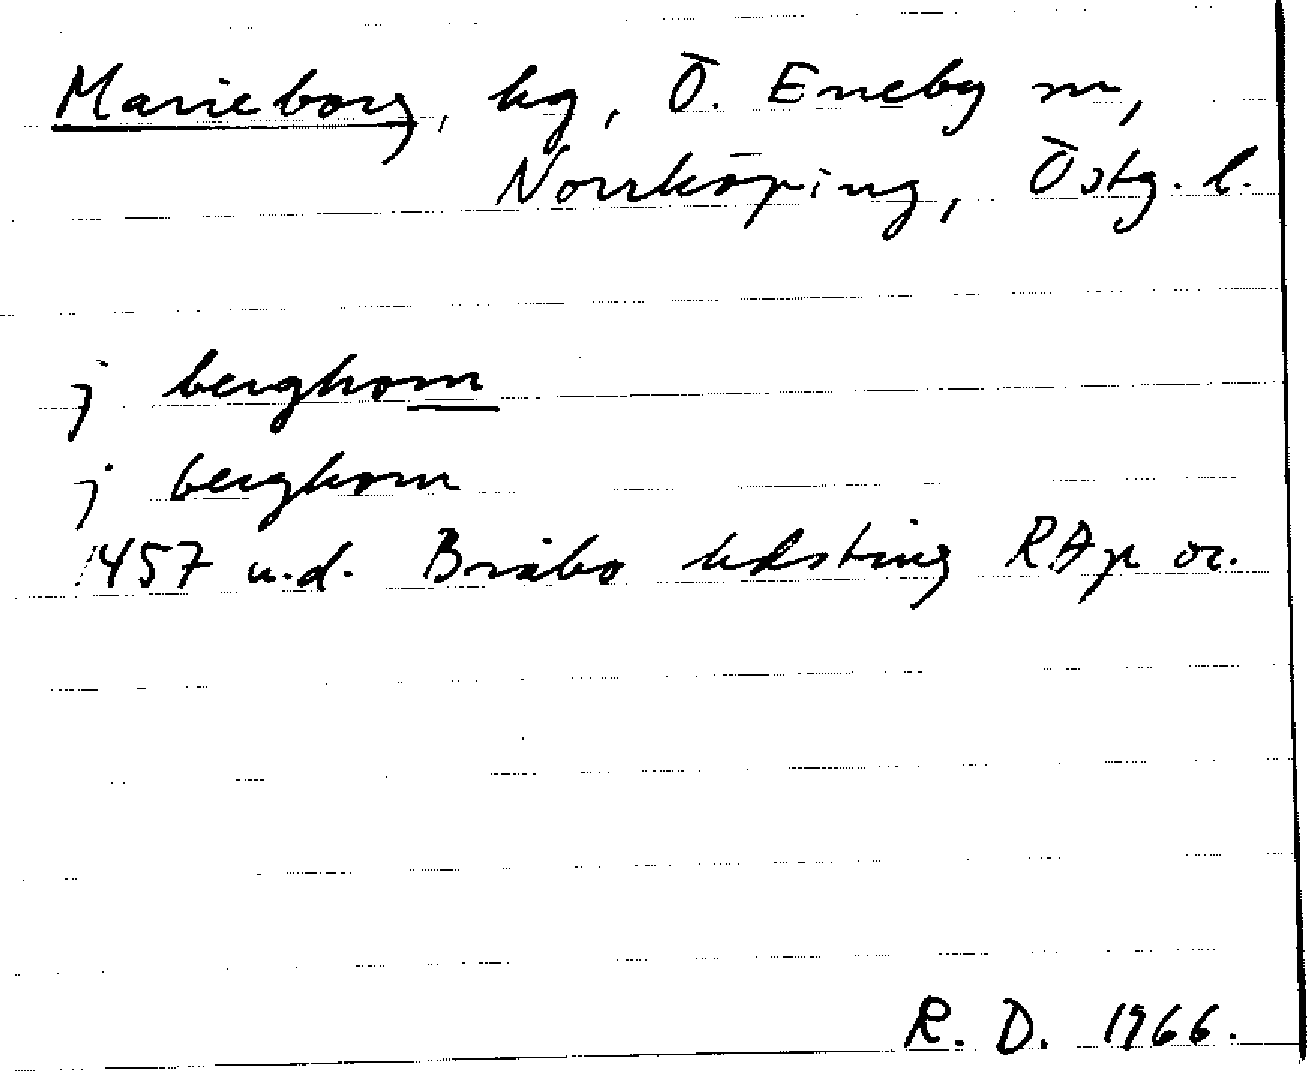 Marieborg, hg, Ö. Eneby sn,
Norrköping, Östg. l.
j berghom
j berghom
1457 u.d. Bråbo hdsting RAp or.
R. D. 1966.